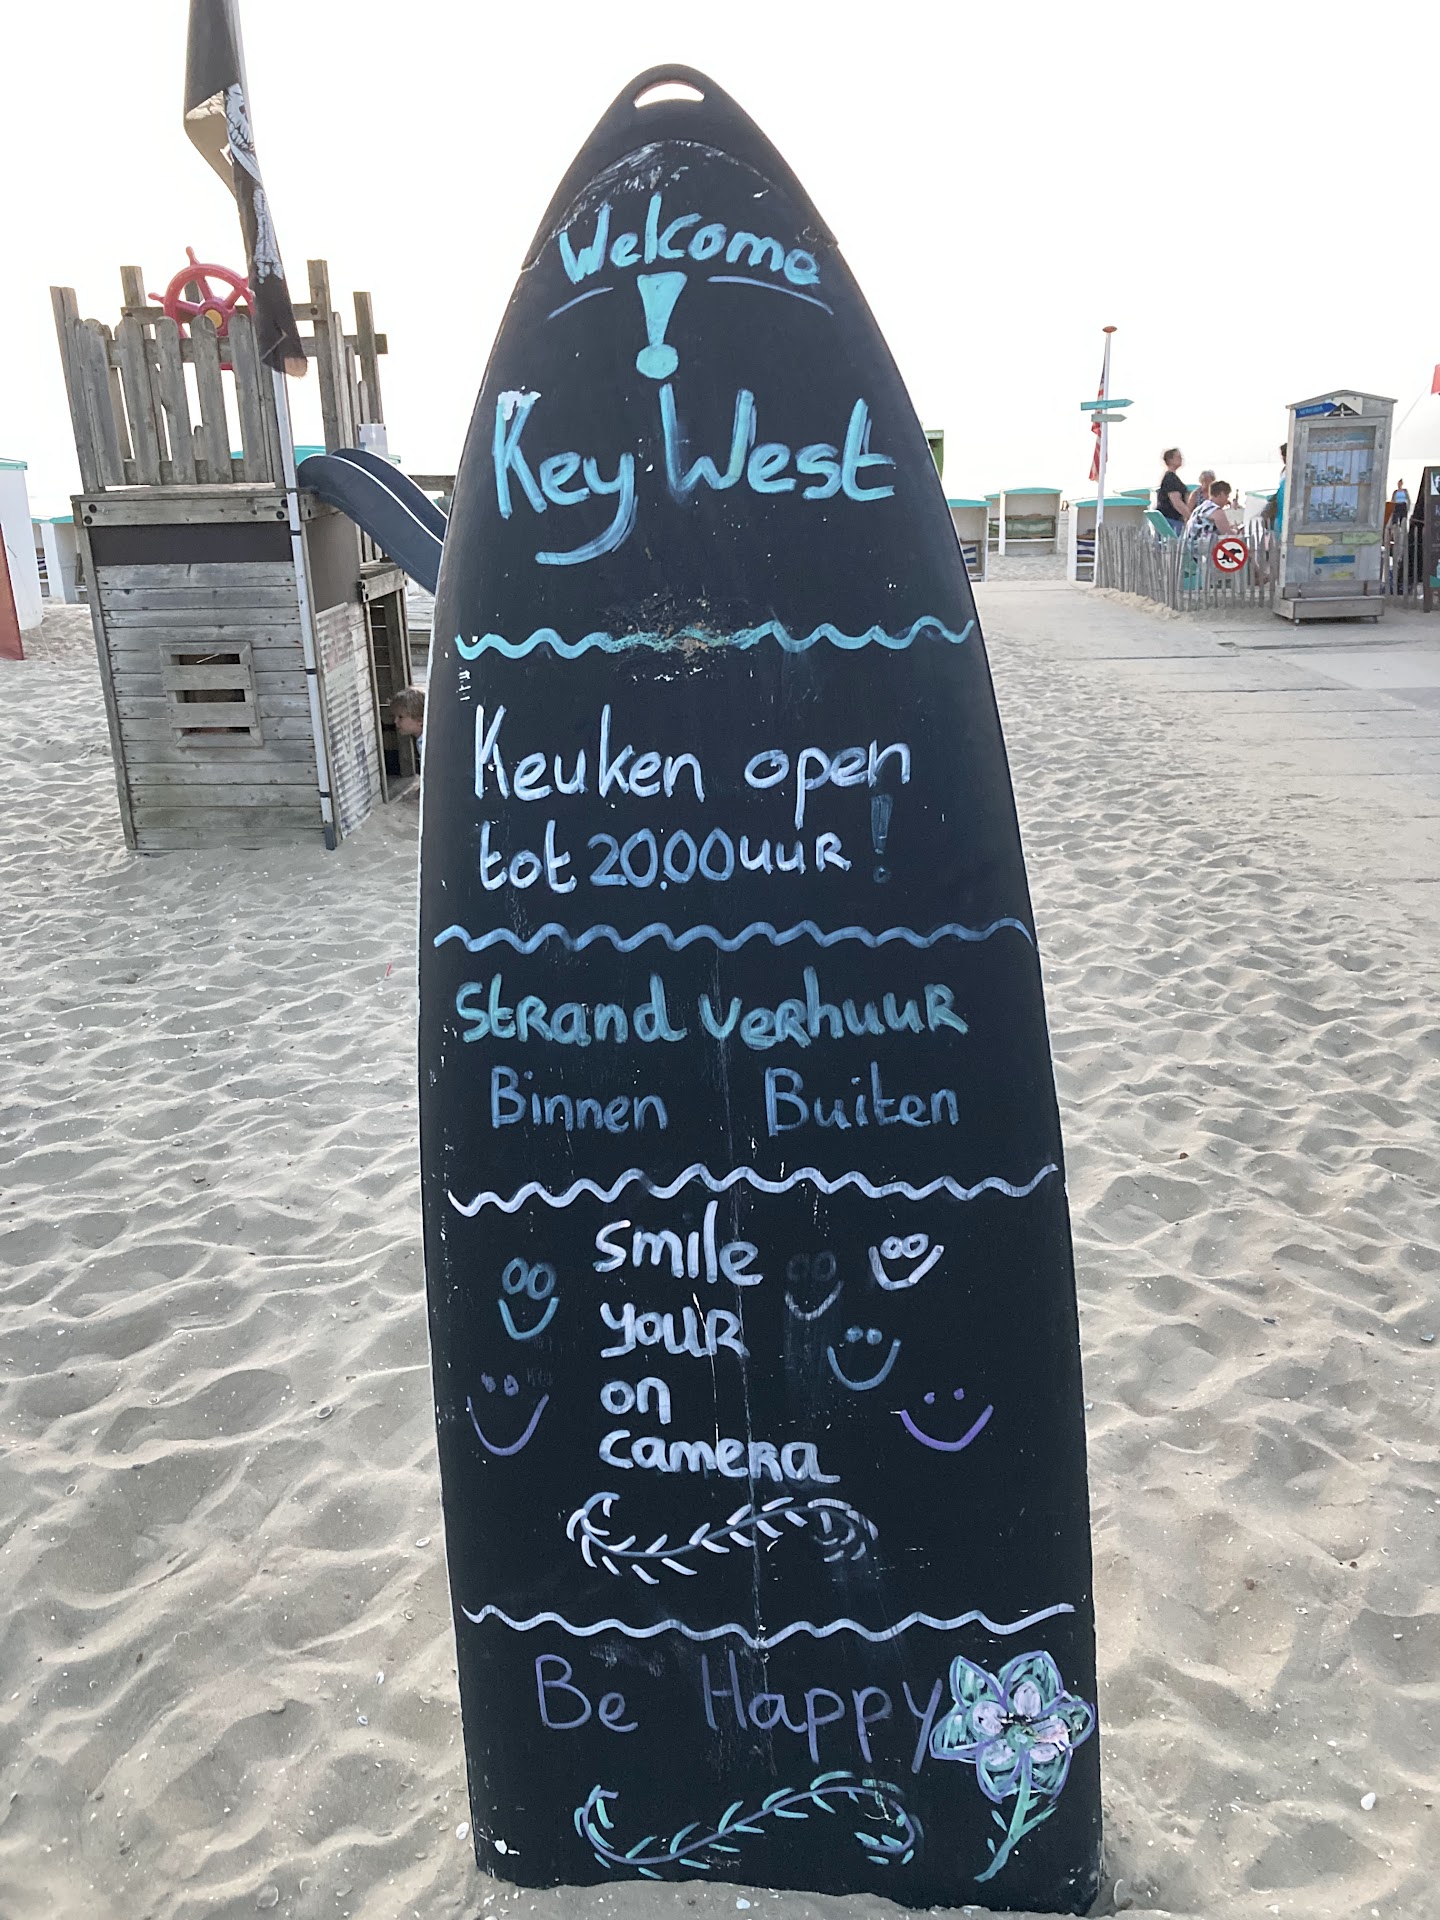 Welcome
!
Key West
Keuken open
tot 20.00 uur !
Strand verhuur
Binnen Buiten
smile
your
on
camera
Be Happy